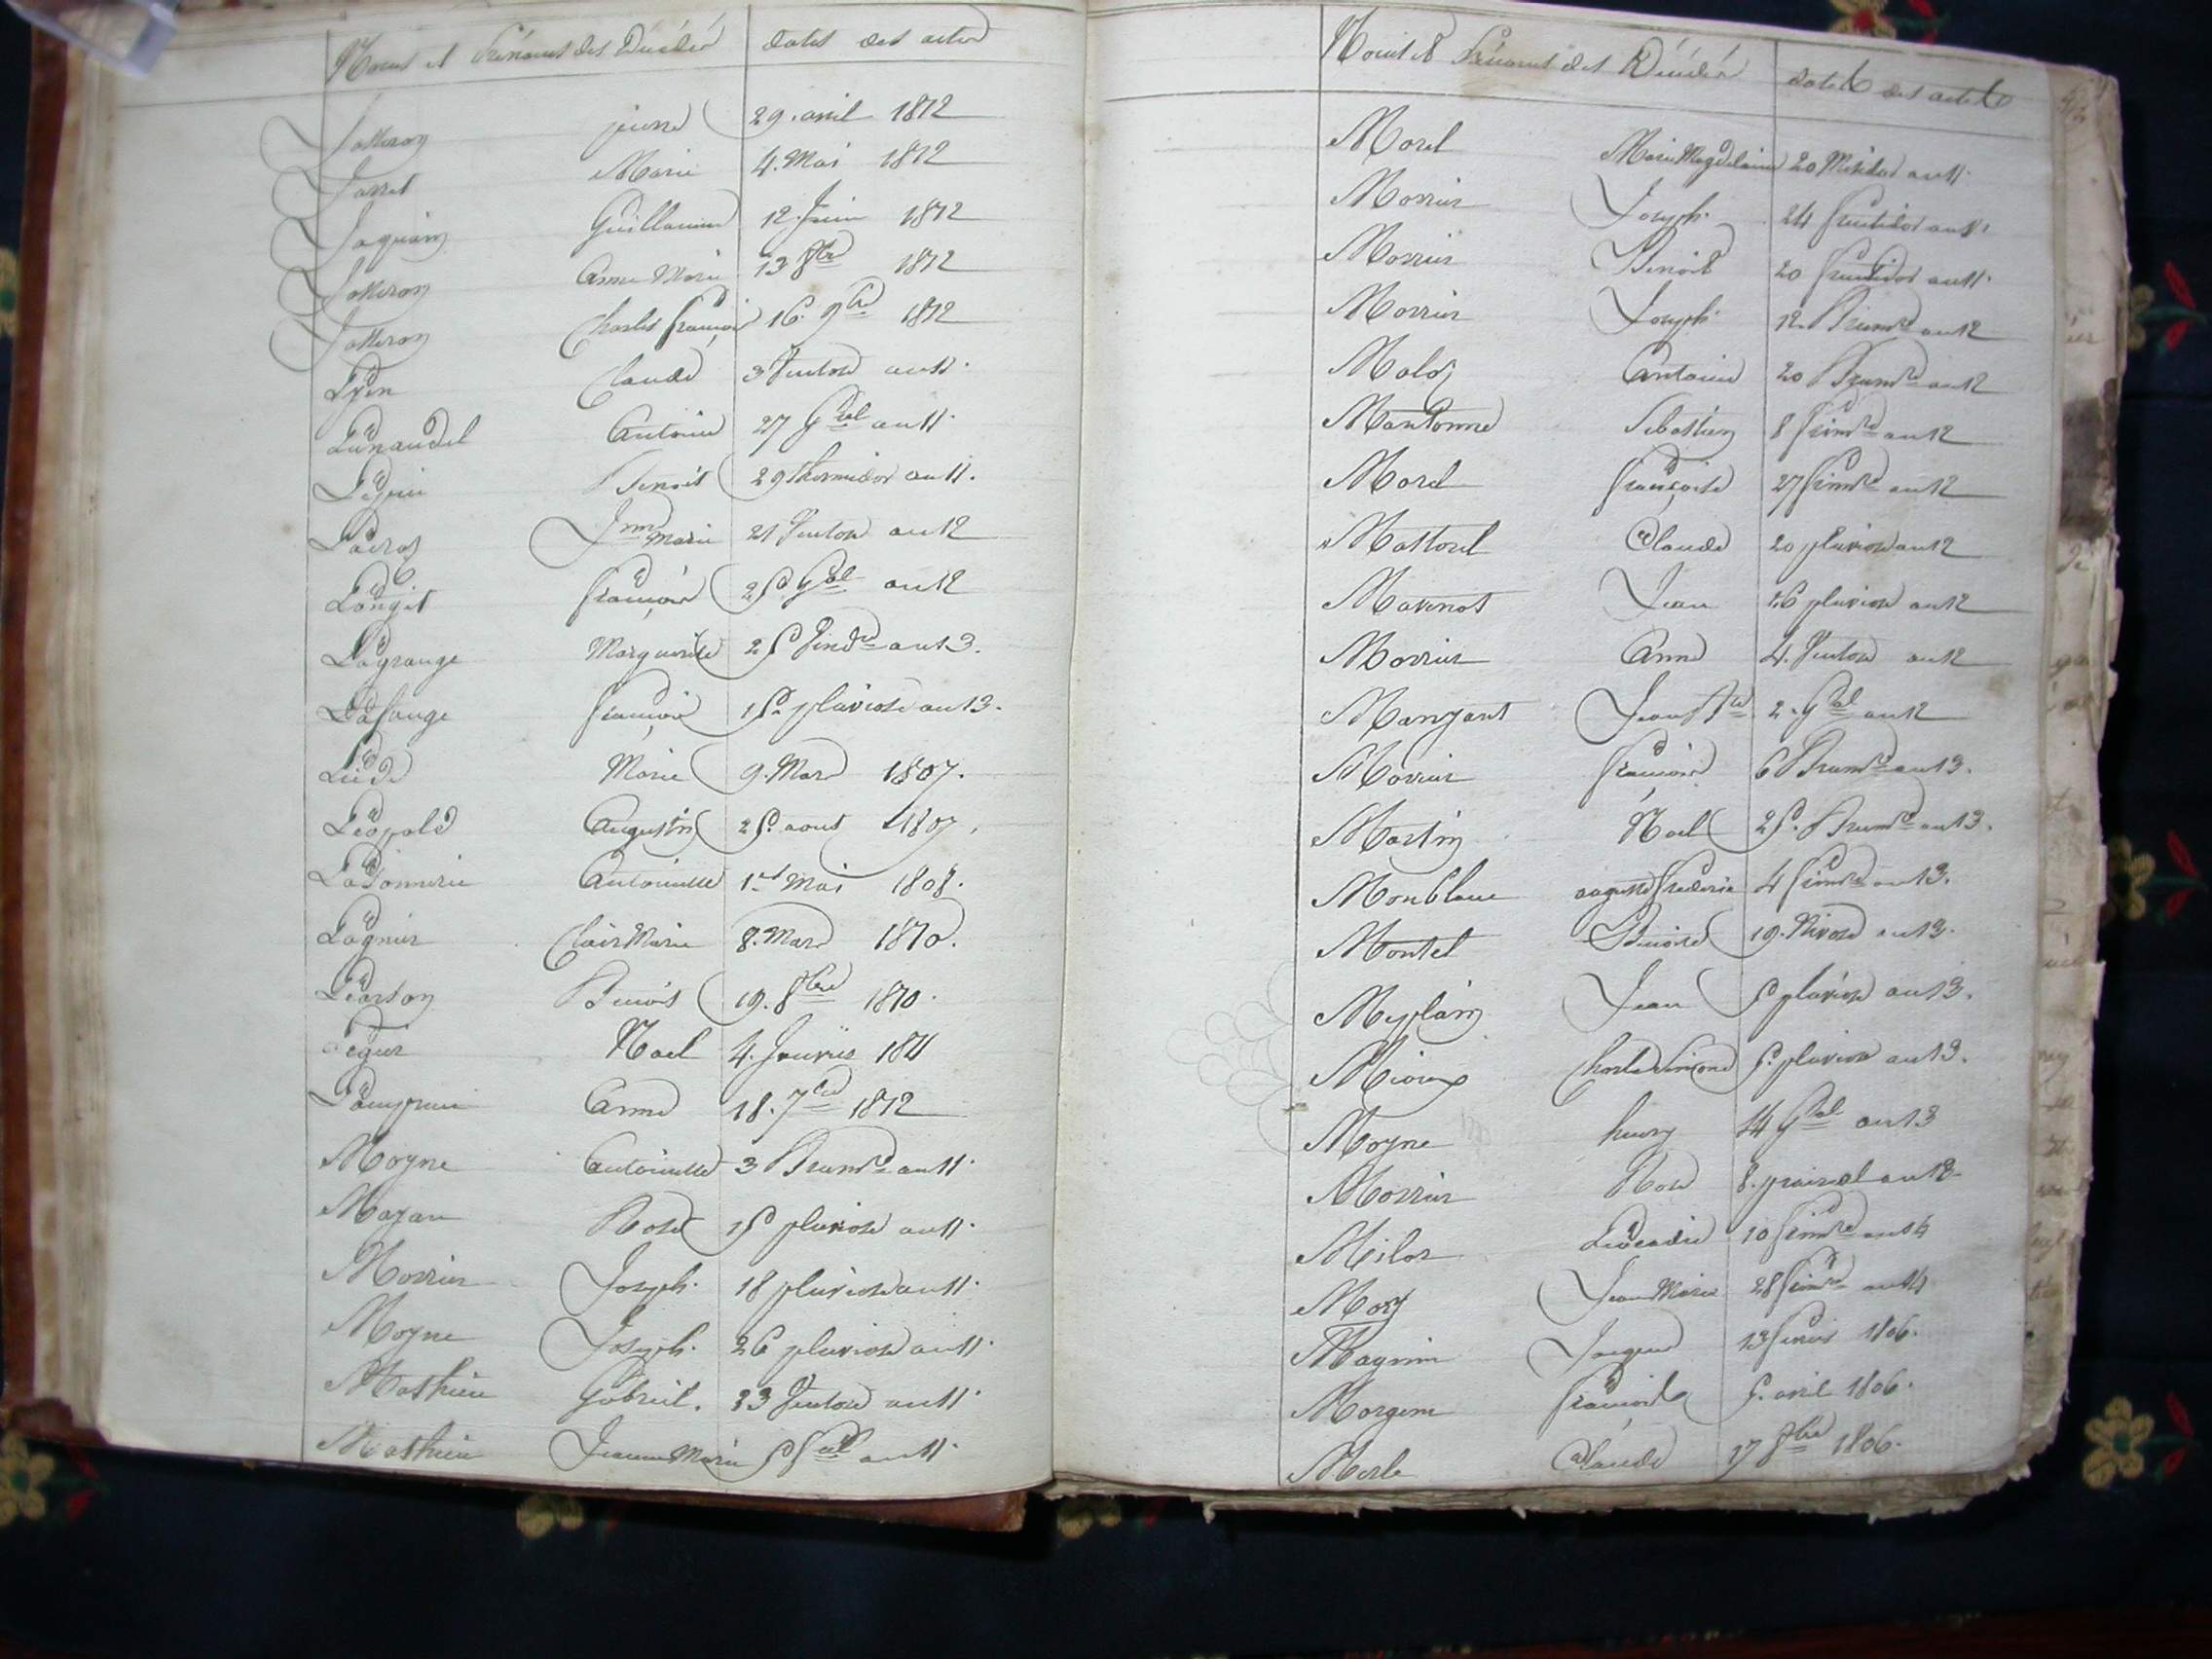 Noms et Prénoms des Décédés dates des actes
pierre 29. avril 1812
Jarret Marie 4. Mai 1812
Jaquain Guillaume 12. Juin 1812
Anne Marie 13 8bre 1812
Charles François 16. 9bre 1812
Claude 3 Ventose an 11.
Antoine 27 Gal an 11.
Benoit 29 thermidor an 11.
Marie 21 Ventose an 12
François 25 Gal an 12
Lagrange Marguerite 25 Vendre an 13.
François 15 pluviose an 13.
Marie 9. Mars 1807.
Léopold Augustin 25. aout 1807.
Antoinette 1er Mai 1808.
Lagnier Marie 8. Mars 1810.
Benoit 19. 8bre 1810.
Noel 4. Janvier 1811
Anne 18. 7bre 1812
Moyne Antoinette 3 Brumre an 11.
Mazan Rose 15 pluviose an 11.
Morrier Joseph. 18 pluviose an 11.
Moyne Joseph. 26 pluviose an 11.
Mathieu Gabriel. Ventose an 11.
Mathieu Jeanne Marie 5 an 11.
Noms et Prénoms des Décédés dates des actes
Morel Marie Magdelaine 20 Messidor an 11.
Morrier Joseph. 24 fructidor an 11.
Morrier Benoit 20 fructidor an 11.
Morrier Joseph. 12 Brumre an 12
Antoine 20 Brumre an 12
Mantonne Sebastien 8 frimre an 12
Morel françoise 27 frimre an 12
Claude 20 pluviose an 12
Mavinot Jean 26 pluviose an 12
Morrier Anne 4. Ventose an 12
Manzant Jean 2. Gal an 12
Morrier françois 6 Brumre an 13.
Martin Noel 25. Brumre an 13.
Monblanc auguste frederic 4 frimre an 13.
Montel Benoite 19. Nivose an 13.
Meplain Jean 5 pluviose an 13.
Mioux 5. pluviose an 13.
Moyne henry 14 Gal an 13
Morrier Rose 8. prairial an 13
Milor Leocadie 10 frimre an 14
Mory Jean Marie 28 frimre an 14
Magnin Jacques 13 fevrier 1806.
françois 5. avril 1806.
Merle Claude 17 8bre 1806.